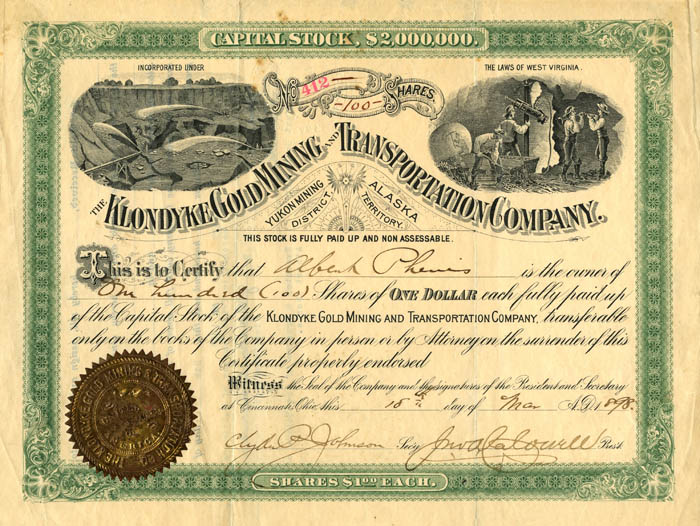 CAPITAL STOCK, $2,000,000.
INCORPORATED UNDER
THE LAWS OF WEST VIRGINIA.
No 412
100 SHARES
THE KLONDYKE GOLD MINING AND TRANSPORTATION COMPANY.
YUKON MINING DISTRICT
ALASKA TERRITORY.
THIS STOCK IS FULLY PAID UP AND NON ASSESSABLE.
This is to Certify that Albert is the owner of
One hundred (100) Shares of ONE DOLLAR each fully paid up
of the Capital Stock of the KLONDYKE GOLD MINING AND TRANSPORTATION COMPANY, transferable
only on the books of the Company in person or by Attorney on the surrender of this
Certificate properly endorsed
Witness the Seal of the Company and the signatures of the President and Secretary
at Cincinnati, Ohio this 15th day of Mar A.D. 1898.
Clyde P. Johnson Secy Prest
SHARES $1.00 EACH.